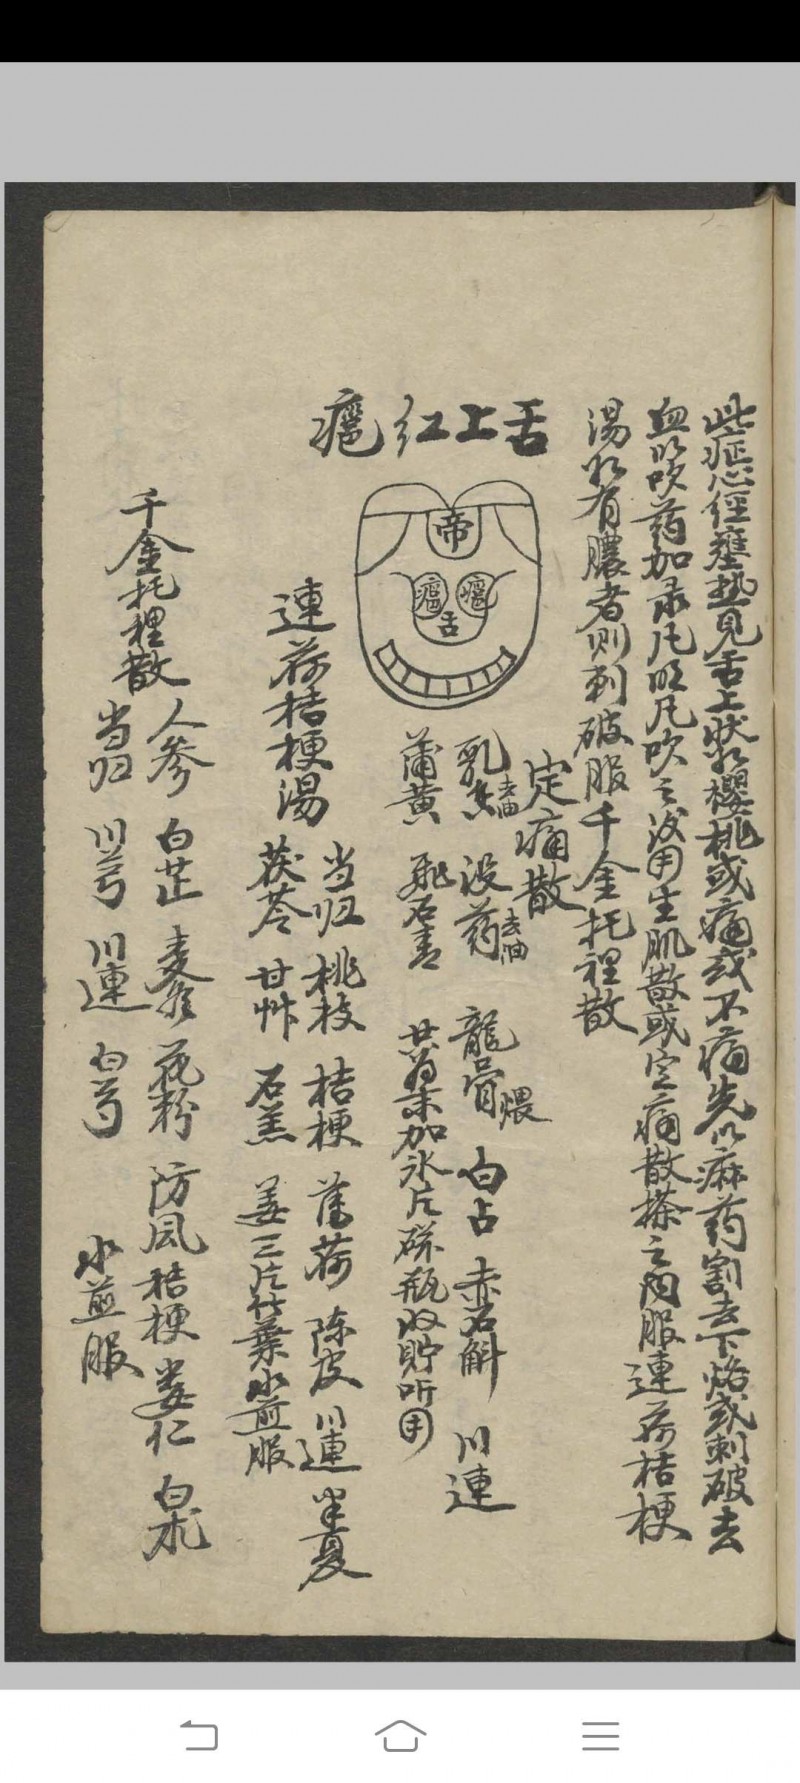 此症心經壅热見舌上狀如櫻桃或痛或不痛先以麻药割去下烙或刺破去
血以吹药加录凡明凡吹之後用生肌散或定痛散搽之内服連荷桔梗
湯如有膿者则刺破服千金托裡散
舌上红瘪
帝
舌
定痛散
乳香去油 没药去油 龍骨煨 白占 赤石斛 川連
蒲黄 熟石膏 共為末加冰片研瓶收貯听用
連荷桔梗湯
当归 桃枝 桔梗 薄荷 陈皮 川連 半夏
茯苓 甘艸 石羔 姜三片竹葉水煎服
千金托裡散
人參 白芷 麦冬 花粉 防风 桔梗 蒌仁 白朮
当归 川芎 川連 白芍 水煎服